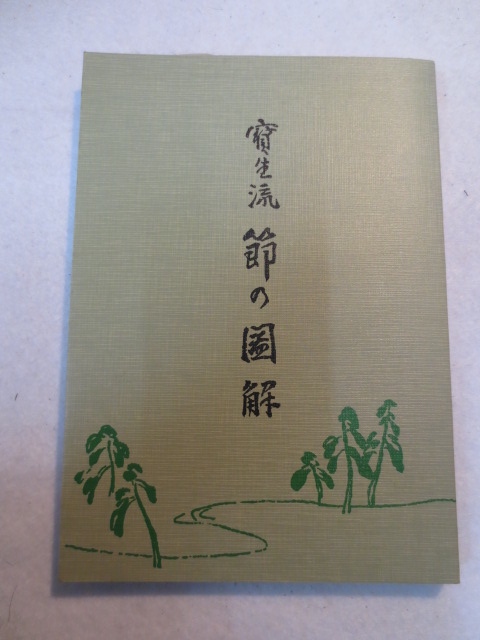 寶生流 節の圖解